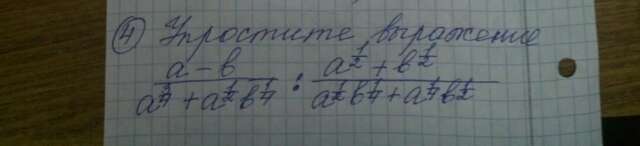 ④ Упростите выражение
a-b / (a^{3/4} + a^{1/2}b^{1/4}) : (a^{1/2} + b^{1/2}) / (a^{1/2}b^{1/4} + a^{1/4}b^{1/2})